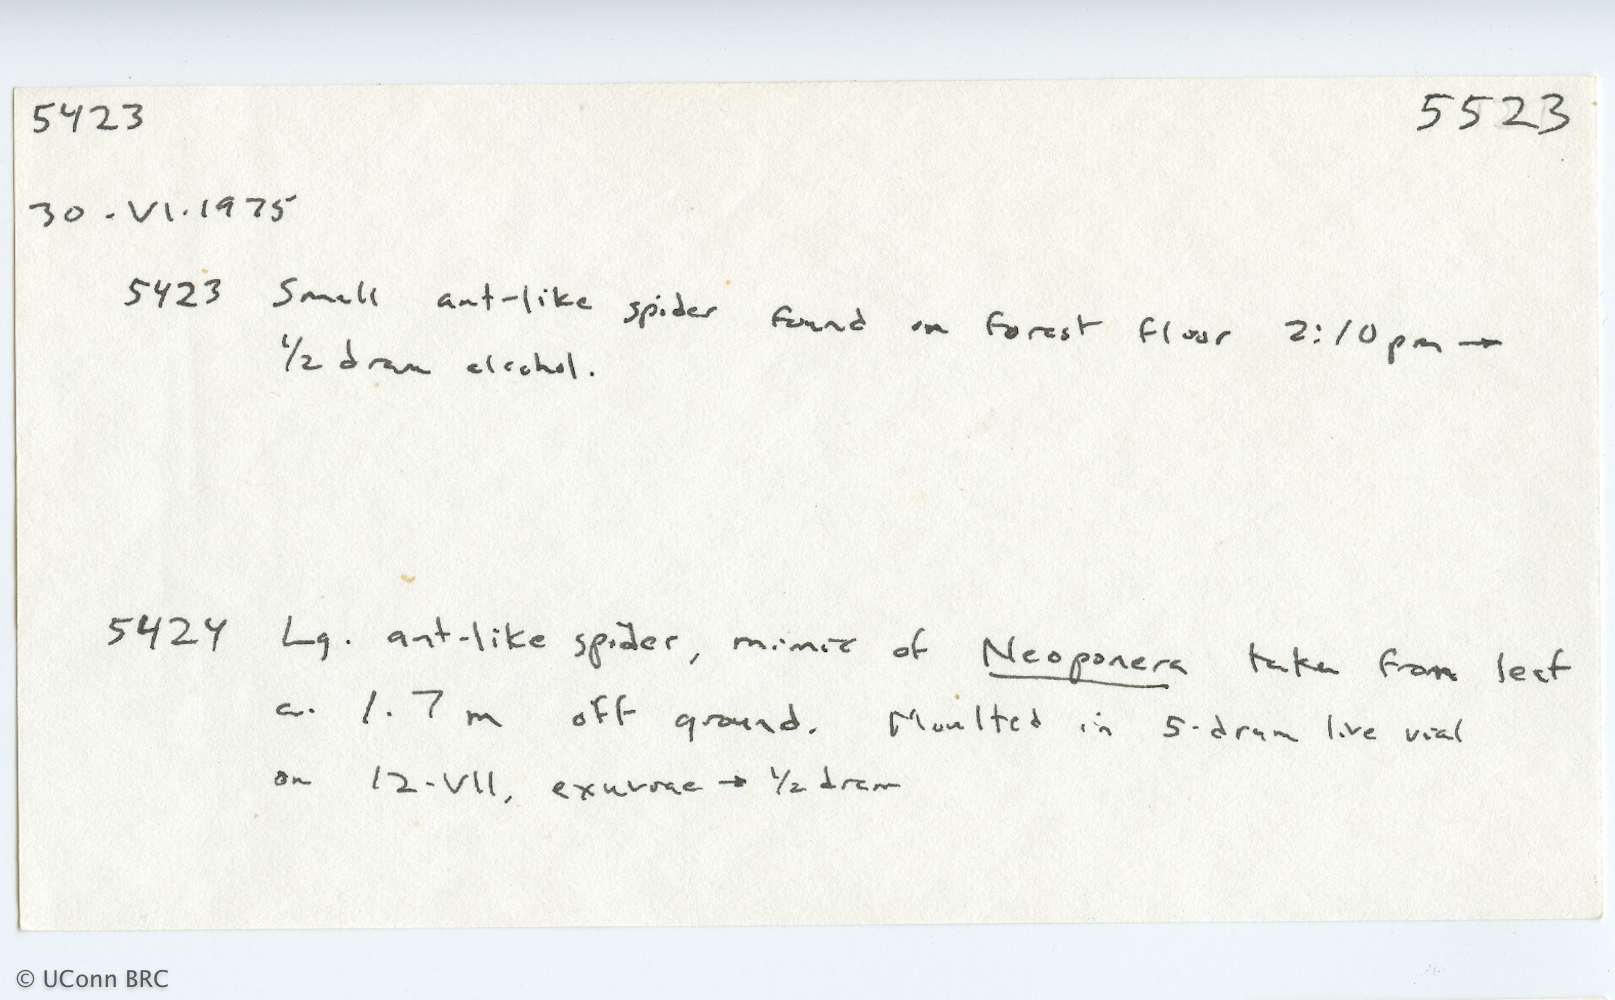 5423 5523
30-VI.1975
5423 Small ant-like spider found on forest floor 2:10pm →
1/2 dram alcohol.
5424 Lg. ant-like spider, mimic of Neoponera taken from leaf
ca. 1.7 m off ground. Moulted in 5-dram live vial
on 12-VII, exuviae → 1/2 dram
© UConn BRC